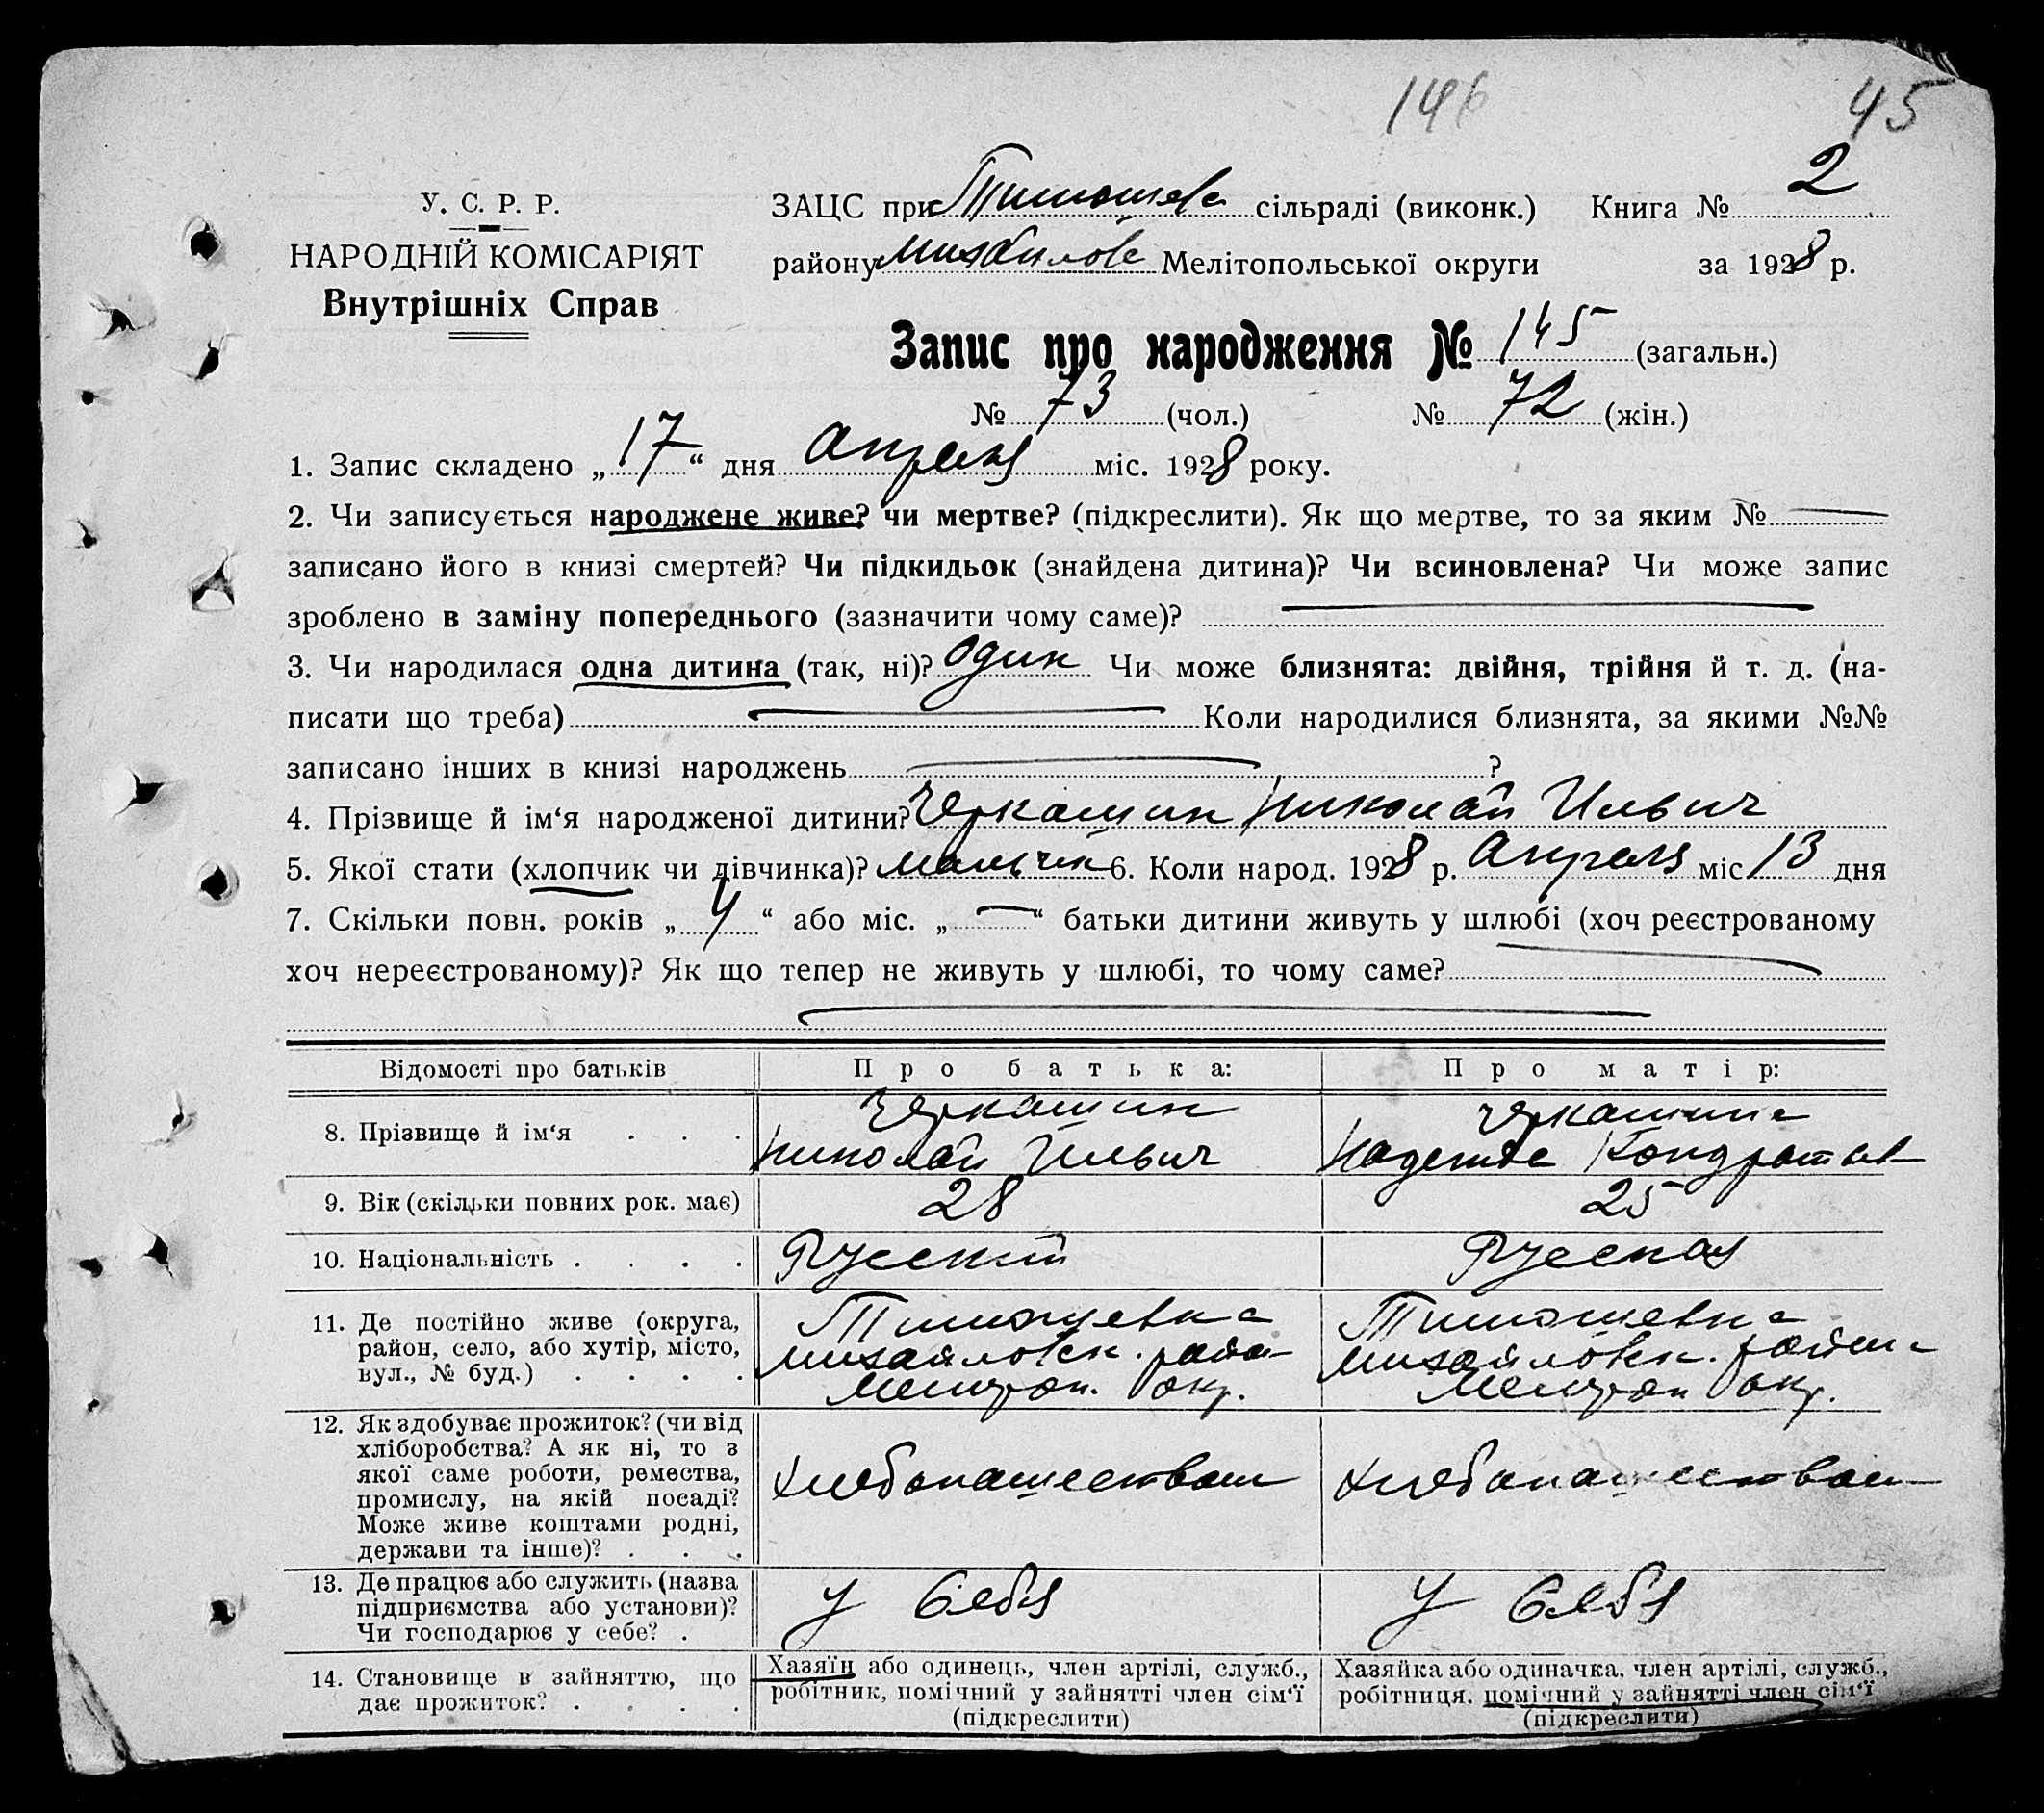 146 45
У. С. Р. Р.
НАРОДНІЙ КОМІСАРІЯТ
Внутрішніх Справ
ЗАЦС при Тимошев сільраді (виконк.) Книга № 2
району Михайлов Мелітопольської округи за 1928 р.
Запис про народження № 145 (загальн.)
№ 73 (чол.) № 72 (жін.)
1. Запис складено „17“ дня Апреля міс. 1928 року.
2. Чи записується народжене живе? чи мертве? (підкреслити). Як що мертве, то за яким №
записано його в книзі смертей? Чи підкидьок (знайдена дитина)? Чи всиновлена? Чи може запис
зроблено в заміну попереднього (зазначити чому саме)?
3. Чи народилася одна дитина (так, ні)? один Чи може близнята: двійня, трійня й т. д. (на-
писати що треба) Коли народилися близнята, за якими №№
записано інших в книзі народжень ?
4. Прізвище й ім‘я народженої дитини? Черкашин Николай Ильич
5. Якої стати (хлопчик чи дівчинка)? мальчик 6. Коли народ. 1928 р. Апреля міс 13 дня
7. Скільки повн. років „4“ або міс. „—“ батьки дитини живуть у шлюбі (хоч реєстрованому
хоч нереєстрованому)? Як що тепер не живуть у шлюбі, то чому саме?
Відомості про батьків Про батька: Про матір:
8. Прізвище й ім‘я . . . Черкашин Николай Ильич Черкашина Надежда Кондратьев
9. Вік (скільки повних рок. має) 28 25
10. Національність . . . . Русский Русская
11. Де постійно живе (округа,
район, село, або хутір, місто,
вул., № буд.) . . . .
Тимошевка
Михайловск. района
Мелитоп. окр.
Тимошевка
Михайловск. района
Мелитоп окр.
12. Як здобуває прожиток? (чи від
хліборобства? А як ні, то з
якої саме роботи, ремества,
промислу, на якій посаді?
Може живе коштами родні,
держави та інше)? . . .
Хлебопашеством Хлебопашеством
13. Де працює або служить (назва
підприємства або установи)?
Чи господарює у себе? .
У себя У себя
14. Становище в зайняттю, що
дає прожиток? . . . .
Хазяїн або одинець, член артілі, служб.,
робітник, помічний у зайнятті член сім‘ї
(підкреслити)
Хазяйка або одиначка, член артілі, служб.,
робітниця, помічний у зайнятті член сім‘ї
(підкреслити)